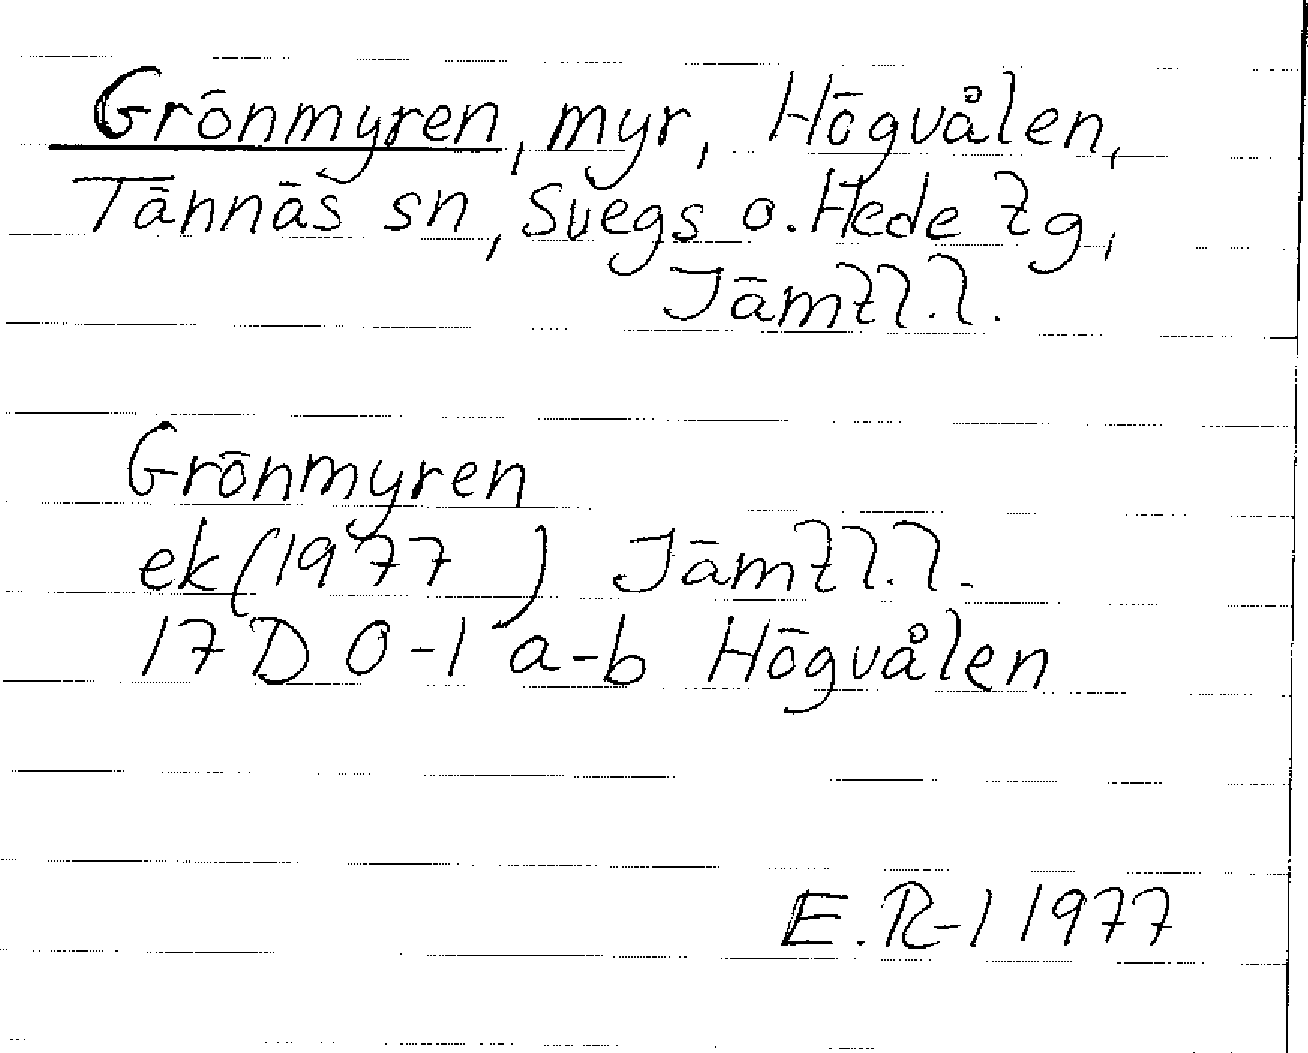 Grönmyren, myr, Högvålen,
Tännäs sn, Svegs o. Hede tg,
Jämtl.l.
Grönmyren
ek (1977) Jämtl.l.
17 D 0-1 a-b Högvålen
E.R-l 1977